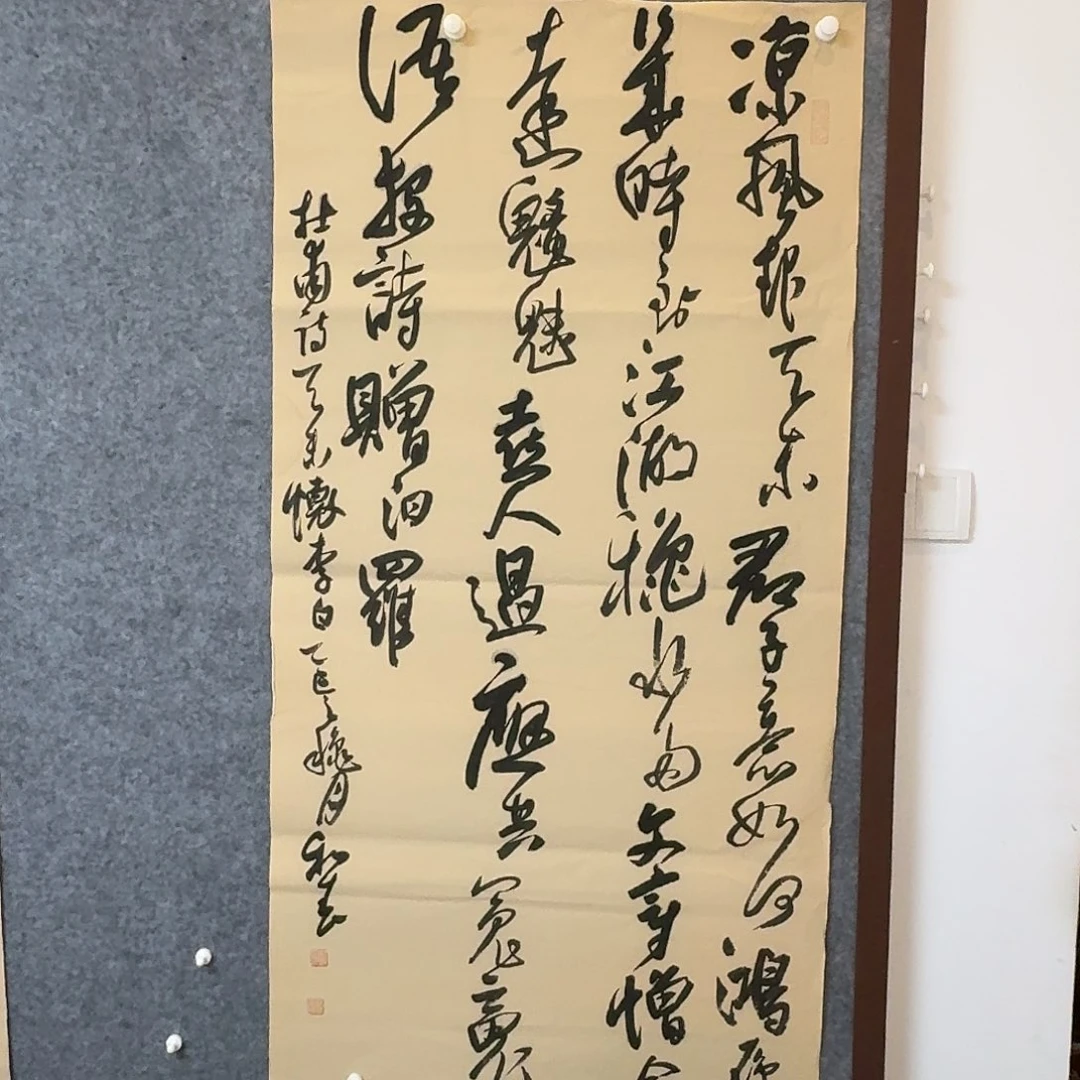 涼風起天末君子意如何鴻
幾時到江湖穐水多文章憎
達魑魅喜人過應共冤魂
語投詩贈汨羅
杜甫詩天末懷李白乙巳穐月